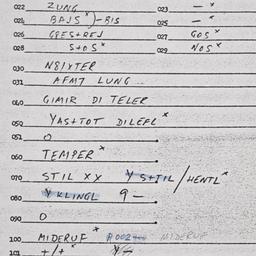 022 ZUNG 023 — x
024 BAJS x)-BIS 025 — x
026 GRES+REJ 027 GOS x
028 S+OS x 029 NOS x
030 N8IYTER
031 AFM7 LUNG
040 GIMIR DI TELER
050 YAS++OT DILEFL x
051 O
060 TEMPER x
070 STIL XX Y S+TIL / HENTL x
080 Y KLINGL 9 —
090 O
100 MIDERUF x A002 MIDERUF
101 +/+ x